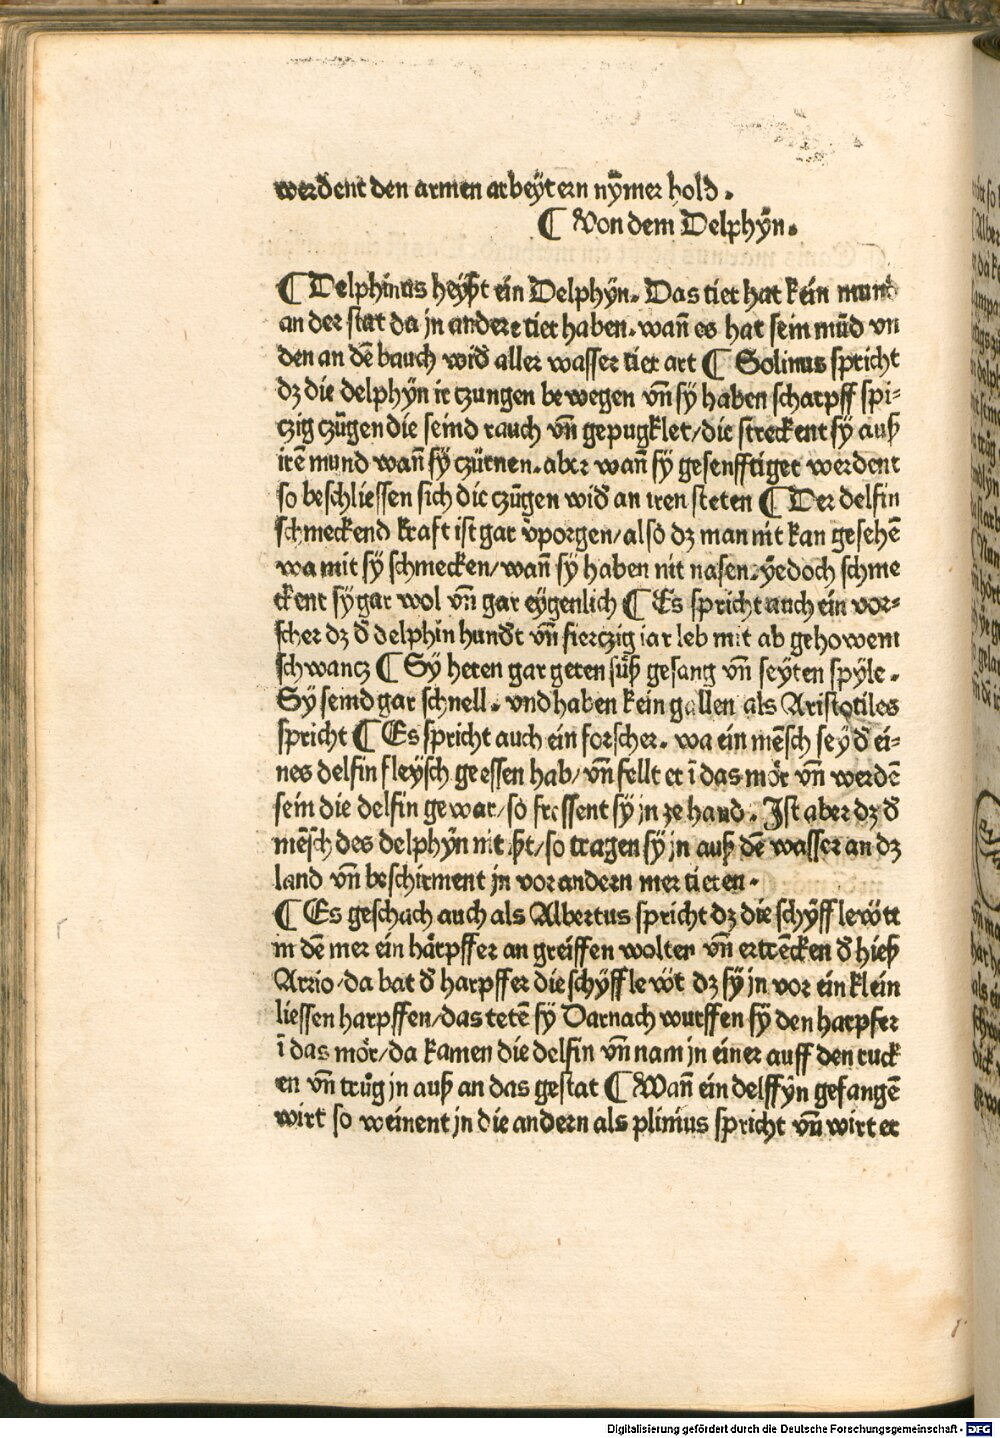 werdent den armen arbeÿtern nÿmer hold.
¶ Von dem Delphÿn.
¶ Delphinus heÿßt ein Delphÿn. Das tier hat kein mund
an der stat da jn andere tier haben. wañ es hat sein mūd vn
den an dē bauch wiđ aller wasser tier art ¶ Solinus spricht
dz die delphÿn ir czungen bewegen vñ sÿ haben scharpff spi-
czig czūgen die seind rauch vñ gepugklet/die streckent sÿ auß
irē mund wañ sÿ czürnen. aber wañ sÿ gesenfftiget werdent
so beschliessen sich die czūgen wiđ an iren steten ¶ Der delfin
schmeckend kraft ist gar v̓porgen/also dz man nit kan gesehē
wa mit sÿ schmecken/wañ sÿ haben nit nasen. ÿedoch schme
ckent sÿ gar wol vñ gar eÿgenlich ¶ Es spricht auch ein vor-
scher dz đ delphin hundt vñ fierczig iar leb mit ab gehowem
schwancz ¶ Sÿ heren gar geren süß gesang vñ seÿten spÿle.
Sÿ seind gar schnell. vnd haben kein gallen als Aristotiles
spricht ¶ Es spricht auch ein forscher. wa ein mēsch seÿ đ ei-
nes delfin fleÿsch geessen hab/vñ fellt er ī das mör vñ werdē
sein die delfin gewar/so fressent sÿ jn ze hand. Ist aber dz đ
mēsch des delphÿn nit ißt/so tragen sÿ jn auß dē wasser an dz
land vñ beschirment jn vor andern mer tieren.
¶ Es geschach auch als Albertus spricht dz die schÿff lewtt
in dē mer ein härpffer an greiffen wolten vñ ertrēcken đ hieß
Arrio. da bat đ harpffer die schÿff lewt dz sÿ jn vor ein klein
liessen harpffen/das tetē sÿ Darnach wurffen sÿ den harpfer
ī das mör/da kamen die delfin vñ nam jn einer auff den ruck
en vñ trůg jn auß an das gestat ¶ Wañ ein delffÿn gefangē
wirt so weinent jn die andern als plinius spricht vñ wirt er
Digitalisierung gefördert durch die Deutsche Forschungsgemeinschaft - DFG